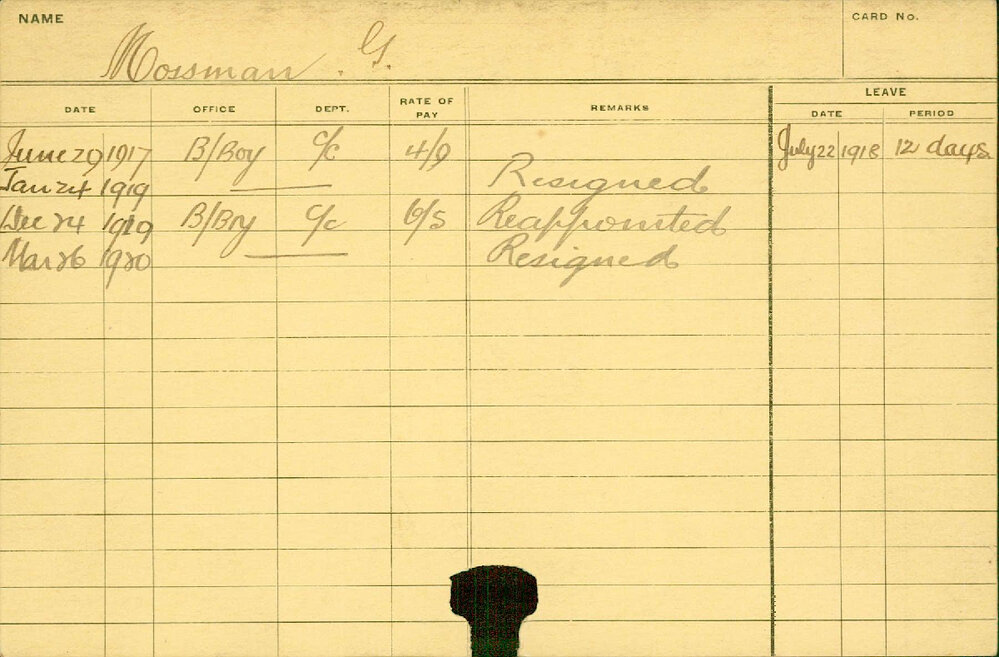 NAME
CARD No.
Mossman . G.
DATE OFFICE DEPT. RATE OF PAY REMARKS LEAVE
DATE PERIOD
June 29 1917 B/Boy C/c 4/9 July 22 1918 12 days
Jan 24 1919 Resigned
Dec 24 1919 B/Boy C/c 6/5 Reappointed
Mar 26 1920 Resigned